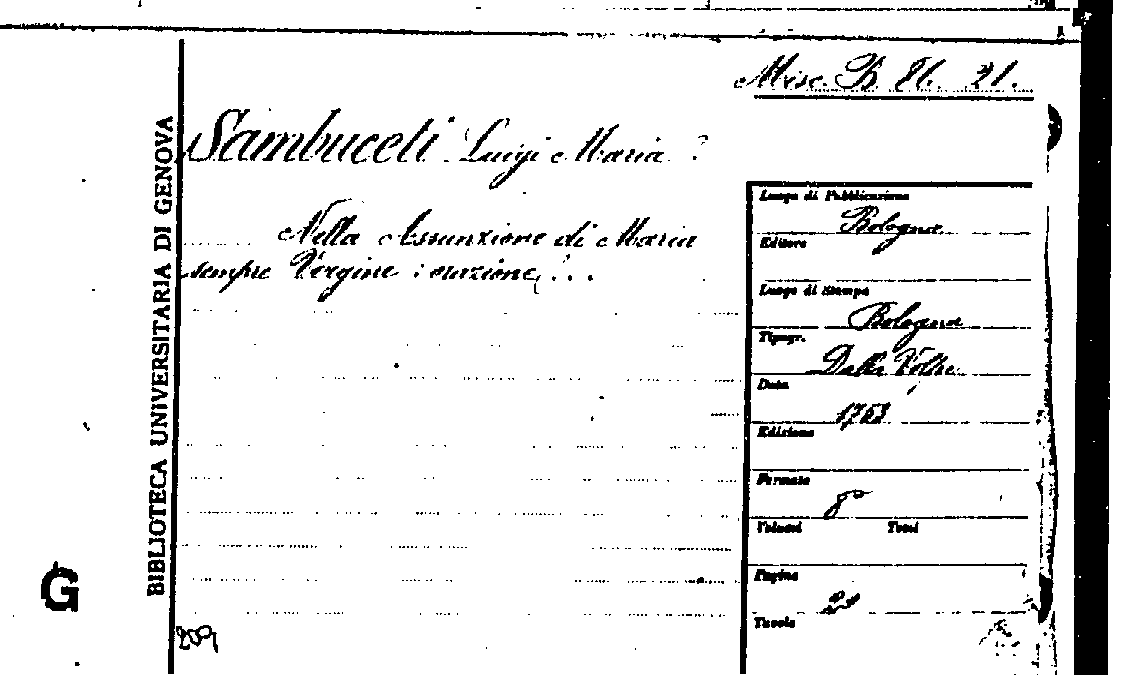 Misc. B 86. 21.
BIBLIOTECA UNIVERSITARIA DI GENOVA
Sambuceti Luigi Maria
Nella Assunzione di Maria
sempre Vergine : orazione, . . .
Luogo di Pubblicazione
Bologna
Editore
Luogo di Stampa
Bologna
Tipogr.
Dalla Volpe
Data
1763
Edizione
Formato
8°
Volumi Tomi
Pagine
Tavole
G
209